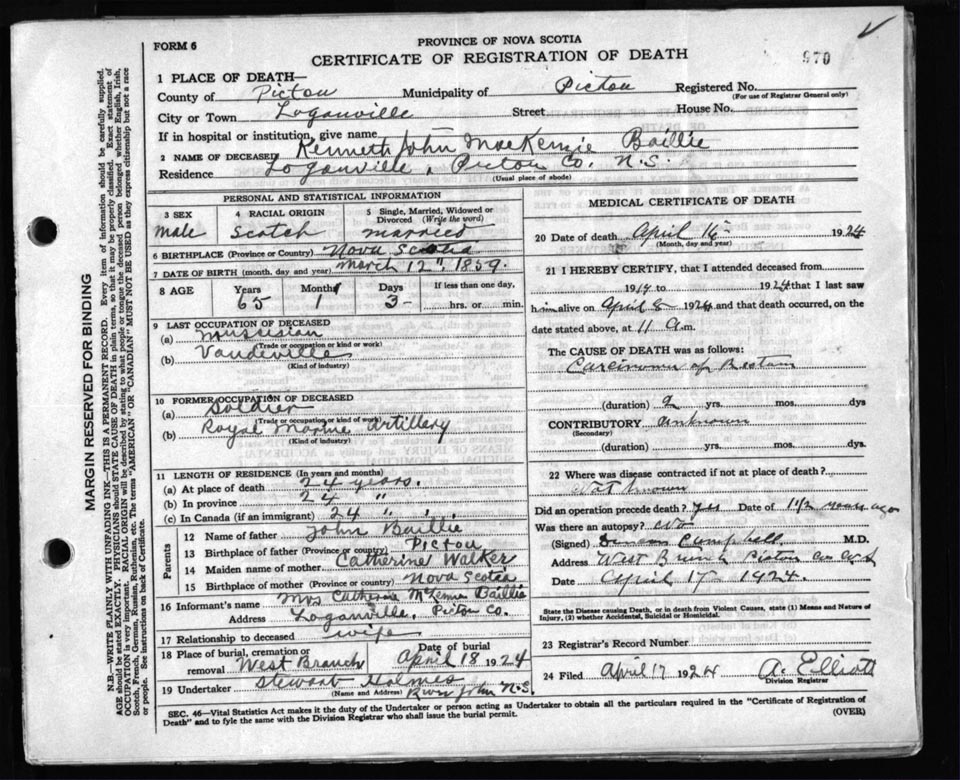 PROVINCE OF NOVA SCOTIA
FORM 6
CERTIFICATE OF REGISTRATION OF DEATH
970
1 PLACE OF DEATH—
County of Pictou Municipality of Pictou Registered No.
(For use of Registrar General only)
City or Town Loganville Street House No.
If in hospital or institution, give name
2 NAME OF DECEASED Kenneth John MacKenzie Baillie
Residence Loganville, Pictou Co. N.S.
(Usual place of abode)
PERSONAL AND STATISTICAL INFORMATION
3 SEX 4 RACIAL ORIGIN 5 Single, Married, Widowed or Divorced (Write the word)
male Scotch married
6 BIRTHPLACE (Province or Country) Nova Scotia
7 DATE OF BIRTH (month, day and year) March 12", 1859.
8 AGE Years Months Days If less than one day,
65 1 3 hrs. or min.
9 LAST OCCUPATION OF DECEASED
(a) Muscisian
(Trade or occupation or kind or work)
(b) Vaudeville
(Kind of industry)
10 FORMER OCCUPATION OF DECEASED
(a) Soldier
(Trade or occupation or kind of work)
(b) Royal Marine Artillery
(Kind of industry)
11 LENGTH OF RESIDENCE (In years and months)
(a) At place of death 24 years.
(b) In province 24 "
(c) In Canada (if an immigrant) 24 "
Parents
12 Name of father John Baillie
13 Birthplace of father (Province or country) Pictou
14 Maiden name of mother Catherine Walker
15 Birthplace of mother (Province or country) Nova Scotia
16 Informant's name Mrs Catherine McKenzie Baillie
Address Loganville, Pictou Co.
17 Relationship to deceased wife
18 Place of burial, cremation or removal West Branch Date of burial April 18 1924
19 Undertaker Stewart Holmes
(Name and Address) River John N.S.
MEDICAL CERTIFICATE OF DEATH
20 Date of death April 1924
(Month, day and year)
21 I HEREBY CERTIFY, that I attended deceased from
1924 that I last saw
him alive on April 8 1924 and that death occurred, on the
date stated above, at 11 a.m.
The CAUSE OF DEATH was as follows:
Carcinoma of Rectum
(duration) 2 yrs. mos. dys
CONTRIBUTORY unknown
(Secondary)
(duration) yrs. mos. dys.
22 Where was disease contracted if not at place of death?
Not known
Did an operation precede death? Yes Date of 1 1/2 years ago
Was there an autopsy? No
(Signed) Campbell M.D.
Address West Branch Pictou Co. N.S
Date April 17 1924.
State the Disease causing Death, or in death from Violent Causes, state (1) Means and Nature of Injury, (2) whether Accidental, Suicidal or Homicidal.
23 Registrar's Record Number
24 Filed April 17 1924 A. Elliott
Division Registrar
SEC. 46—Vital Statistics Act makes it the duty of the Undertaker or person acting as Undertaker to obtain all the particulars required in the "Certificate of Registration of
Death" and to fyle the same with the Division Registrar who shall issue the burial permit.
(OVER)
MARGIN RESERVED FOR BINDING
N.B.—WRITE PLAINLY WITH UNFADING INK—THIS IS A PERMANENT RECORD. Every item of information should be carefully supplied.
AGE should be stated EXACTLY. PHYSICIANS should STATE CAUSE OF DEATH in plain terms, so that it may be properly classified. Exact statement of
OCCUPATION is very important. RACIAL ORIGIN will be described by stating to what people or tongue the deceased person belonged whether English, Irish,
Scotch, French, German, Russian, Ruthenian, etc. The terms "AMERICAN" OR "CANADIAN" MUST NOT BE USED as they express citizenship but not a race
or people. See instructions on back of Certificate.